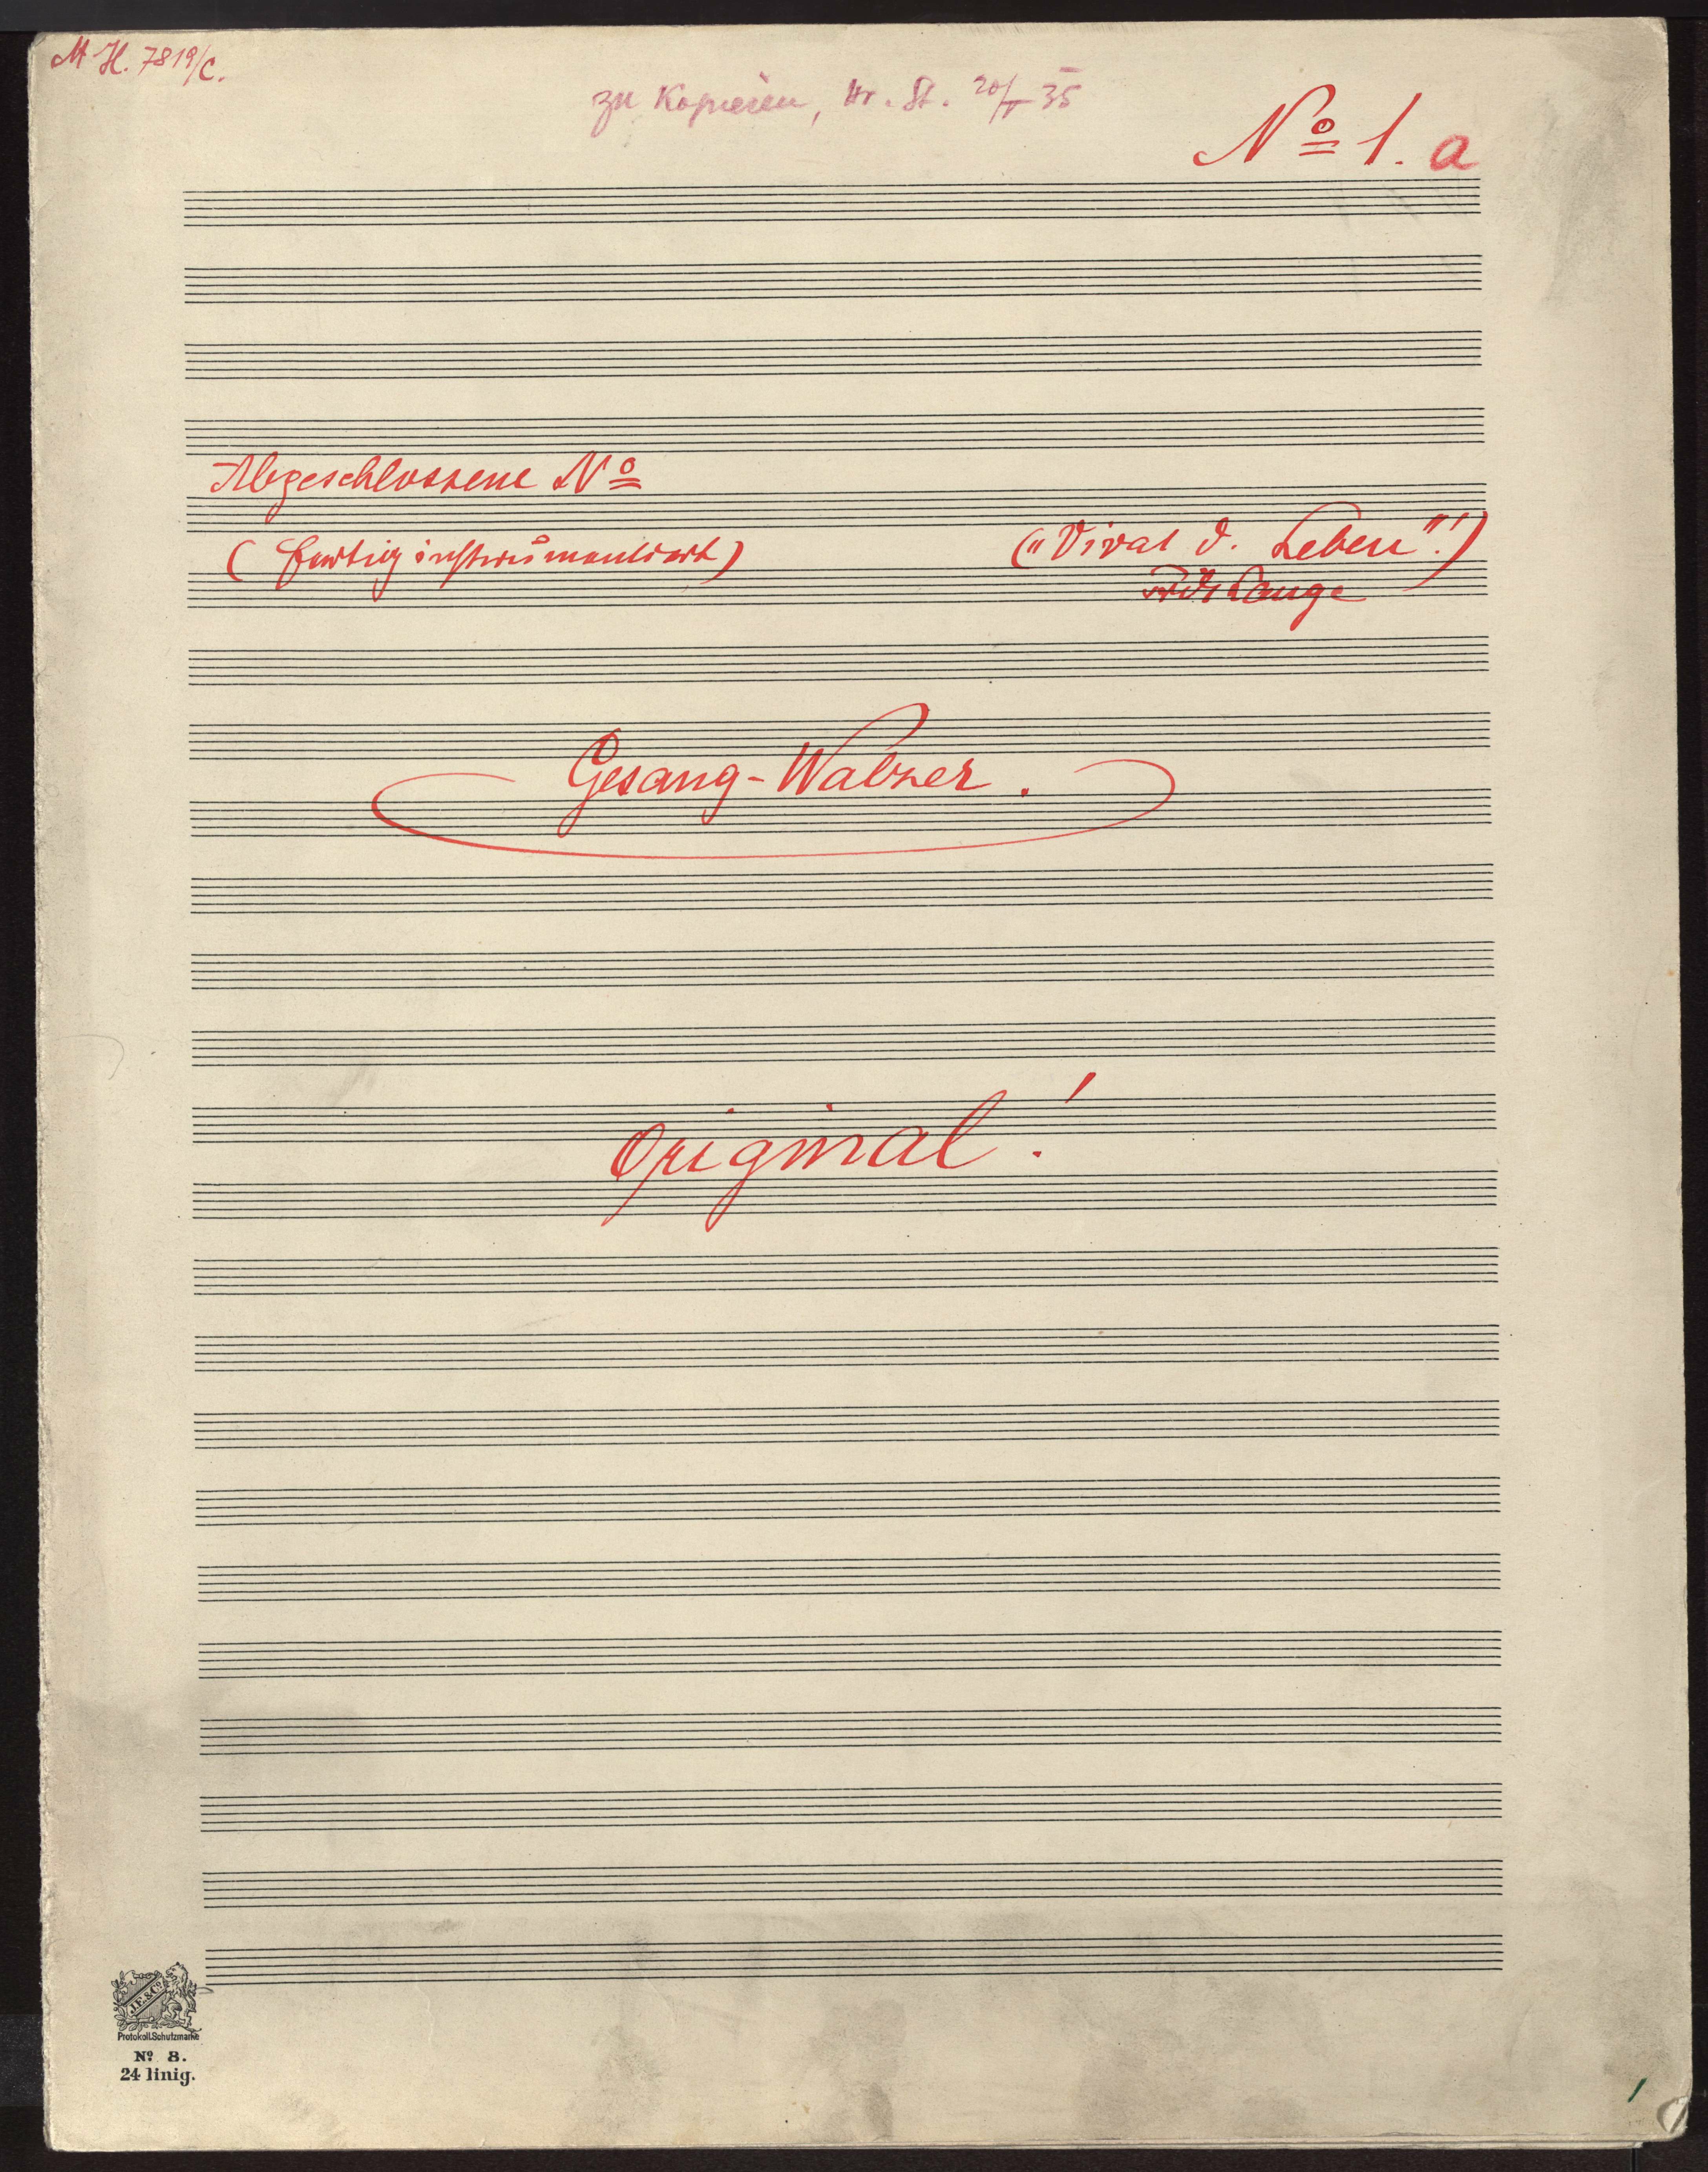 M H. 7819/C.
zu Kopieren, Hr. St. 20/V 35
Nº 1. a
Abgeschlossene Nº
(fertig instrumentiert)
("Vivat d. Leben"!)
Gesang-Walzer.
Original!
J.E.&Cº
Protokoll.Schutzmarke
Nº 8.
24 linig.
1